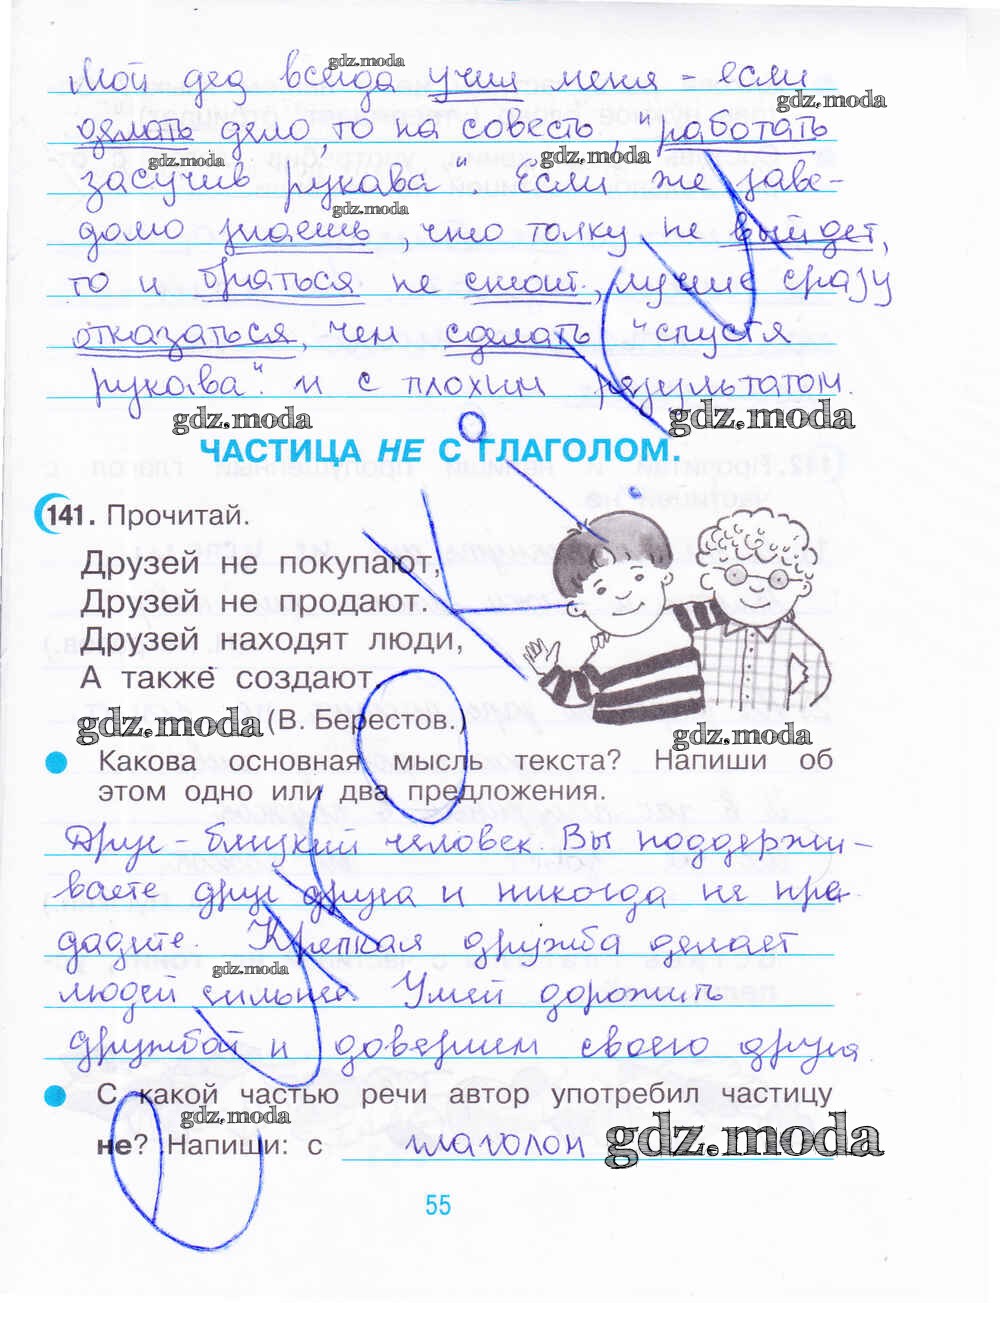 gdz.moda
Мой дед всегда учил меня - если
gdz.moda
делать дело, то на совесть, "работать
gdz.moda gdz.moda
засучив рукава". Если же заве-
gdz.moda
домо знаешь, что толку не выйдет,
то и браться не стоит, лучше сразу
отказаться, чем сделать "спустя
рукава". и с плохим результатом.
gdz.moda gdz.moda
ЧАСТИЦА НЕ С ГЛАГОЛОМ.
141. Прочитай.
Друзей не покупают,
Друзей не продают.
Друзей находят люди,
А также создают.
gdz.moda (В. Берестов.)
gdz.moda
Какова основная мысль текста? Напиши об
этом одно или два предложения.
Друг - близкий человек. Вы поддержи-
ваете друг друга и никогда не пре-
дадите. Крепкая дружба делает
gdz.moda
людей сильнее. Умей дорожить
дружбой и доверием своего друга.
С какой частью речи автор употребил частицу
gdz.moda
не? Напиши: с глаголом gdz.moda
55